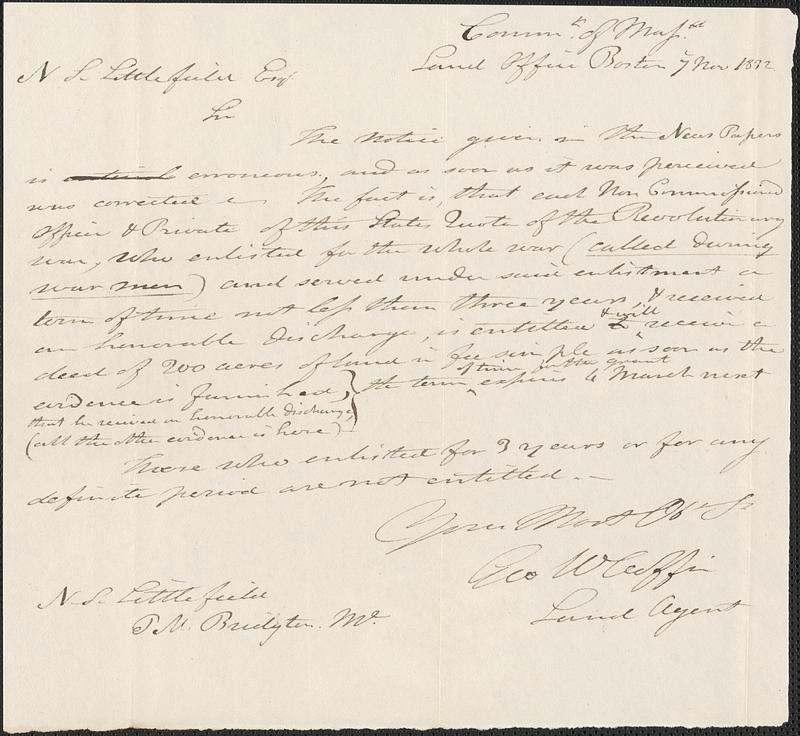 Commth. of Masstt
Land Office Boston 7 Nov 1832
N S. Littlefield Esq
Sir
The notice given in the News Papers
is erroneous, and as soon as it was perceived
was corrected The fact is, that each Non Commissioned
Officer & Private of this States Quota of the Revolutionary
war, who enlisted for the whole war (called during
war men) and served under said enlistment a
term of time not less than three years, & received
an honorable discharge, is entitled & will receive a
deed of 200 acres of land in fee simple as soon as the
evidence is furnished, } the term of time in the grant expires 4 March next
that he received an honorable discharge,
(all the other evidence is here)
Those who enlisted for 3 years or for any
definite period are not entitled.
Your Most Obt Sr
Geo W Coffin
Land Agent
N. S. Littlefield
P. M. Bridgton. Me.